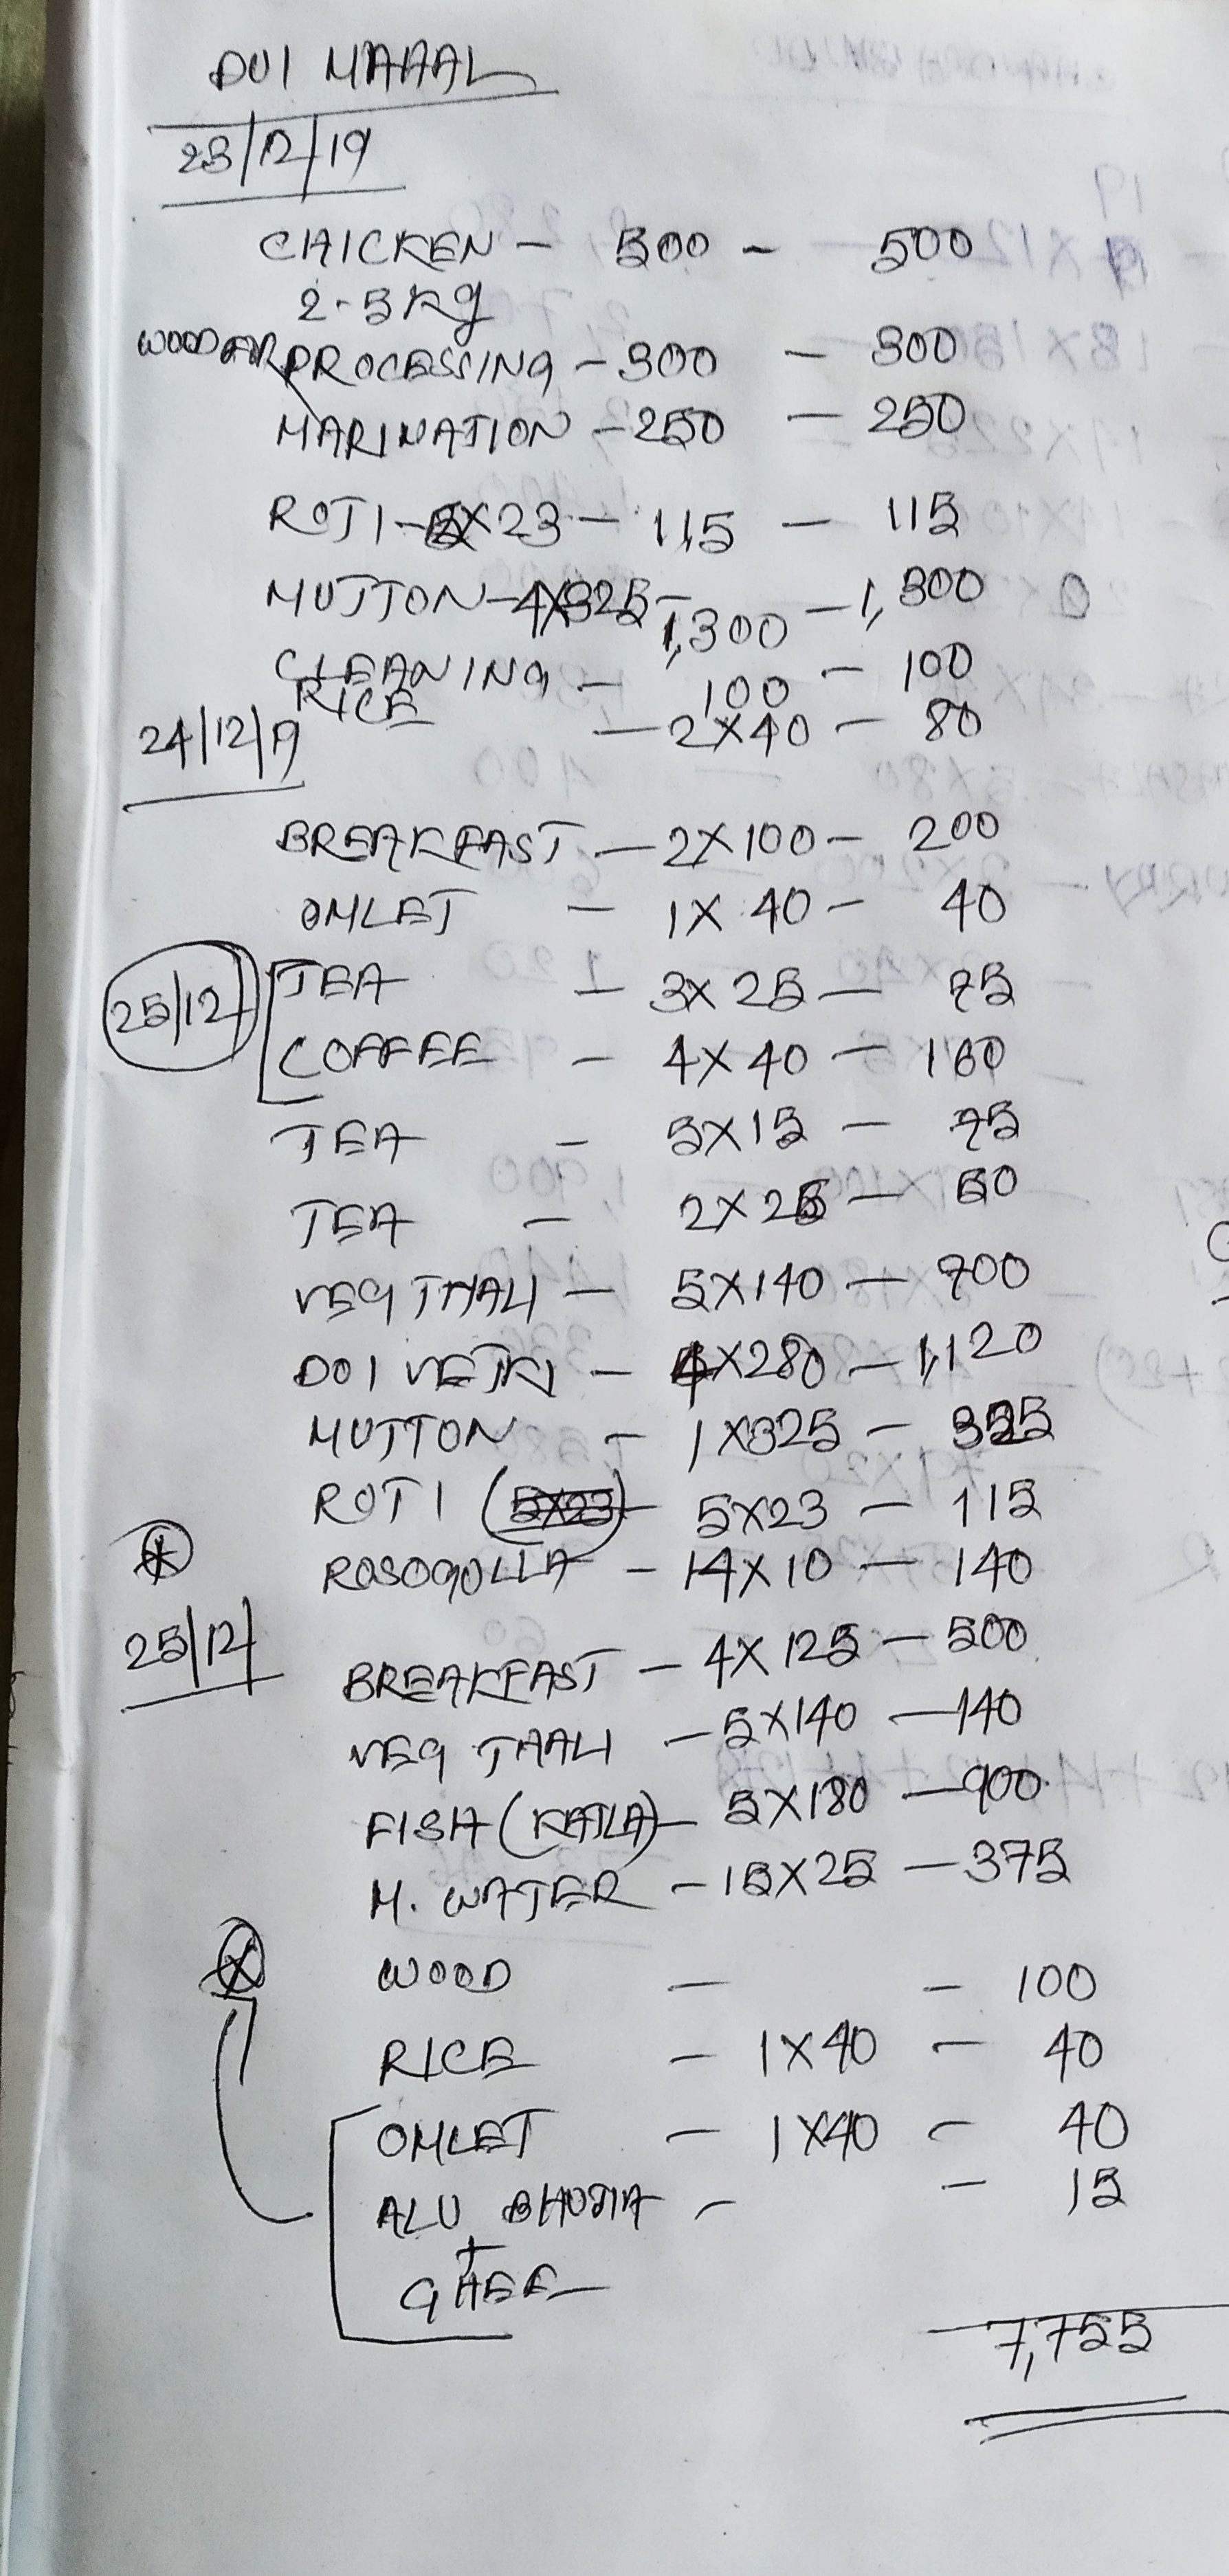 DUI MAHAL
23/12/19
CHICKEN - 500 - 500
2.5 Kg
PROCESSING - 300 - 300
MARINATION - 250 - 250
ROTI - 5X23 - 115 - 115
MUTTON - 4X325 - 1,300 - 1,300
CLEANING - 100 - 100
RICE - 2X40 - 80
24/12/19
BREAKFAST - 2X100 - 200
OMLET - 1X40 - 40
25/12
TEA - 3X25 - 75
COFFEE - 4X40 - 160
TEA - 5X15 - 75
TEA - 2X25 - 50
VEG THALI - 5X140 - 700
DOI - 4X280 - 1,120
MUTTON - 1X325 - 325
ROTI (5X23) - 5X23 - 115
ROSOGOLLA - 14X10 - 140
25/12
BREAKFAST - 4X125 - 500
VEG THALI - 5X140 - 140
FISH (KATLA) - 5X180 - 900
M. WATER - 15X25 - 375
WOOD - - 100
RICE - 1X40 - 40
OMLET - 1X40 - 40
ALU BHUJIA - - 15
+
GHEE
7,755